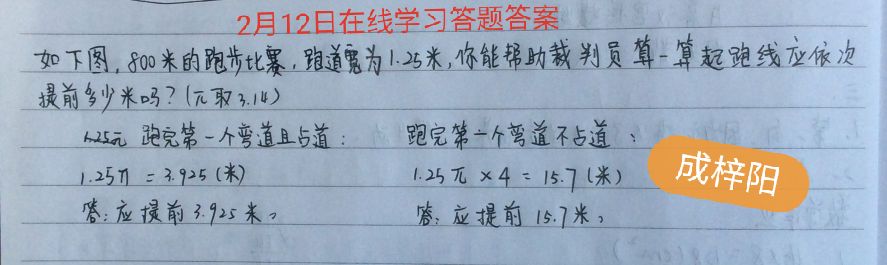 2月12日在线学习答题答案
如下图,800米的跑步比赛,跑道宽为1.25米,你能帮助裁判员算一算起跑线应依次
提前多少米吗?(π取3.14)
1.25π 跑完第一个弯道且占道: 跑完第一个弯道不占道:
1.25π = 3.925(米) 1.25π×4 = 15.7(米)
答:应提前3.925米。 答:应提前15.7米。
成梓阳